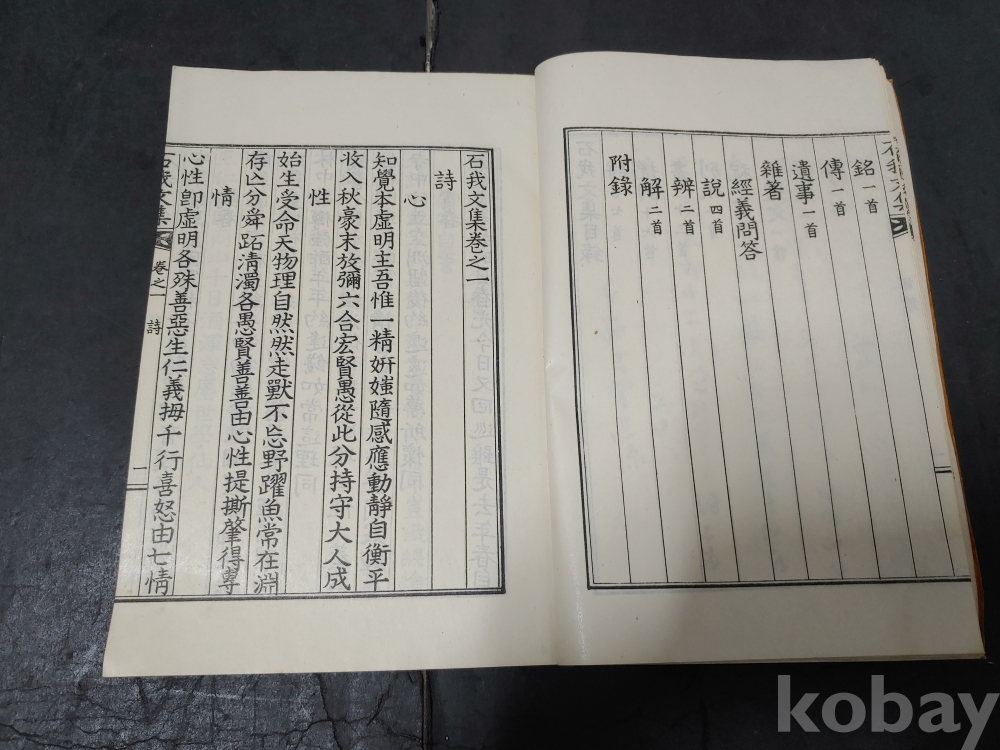 銘 一首
傳 一首
遺事 一首
雜著
經義問答
說 四首
辨 二首
解 二首
附錄
石我文集卷之一
詩
心
知覺本虛明主吾惟一精妍媸隨感應動靜自衡平
收入秋豪末放彌六合宏賢愚從此分持守大人成
性
始生受命天物理自然然走獸不忘野躍魚常在淵
存亡分舜跖清濁各愚賢善善由心性提撕肇得尊
情
心性卽虛明各殊善惡生仁義拇千行喜怒由七情
石我文集 卷之一 詩 二
kobay